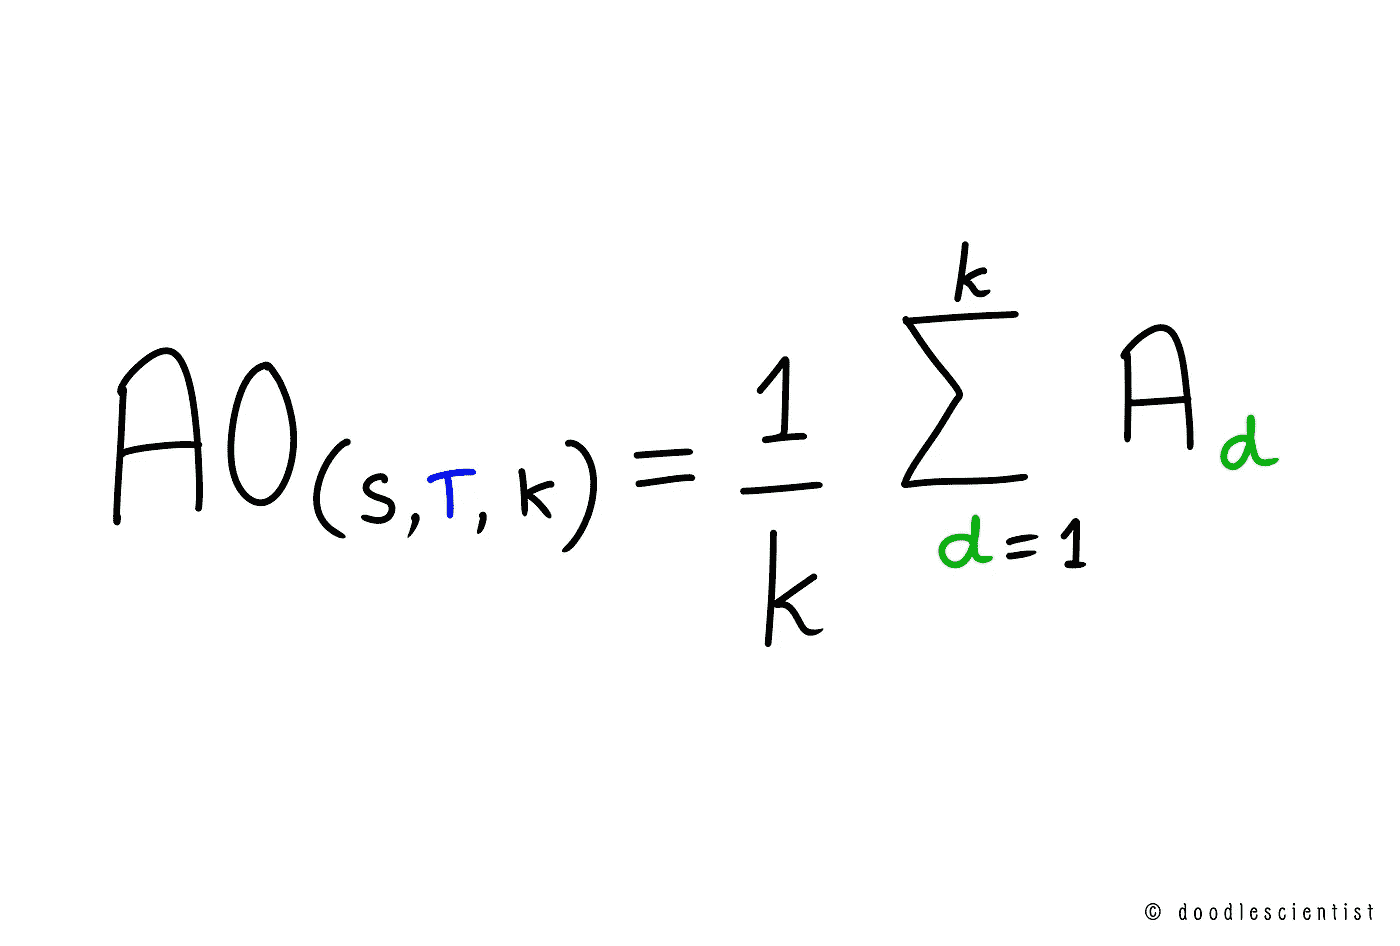 AO(S,T,k) = 1/k k∑d=1 Ad
© doodlescientist